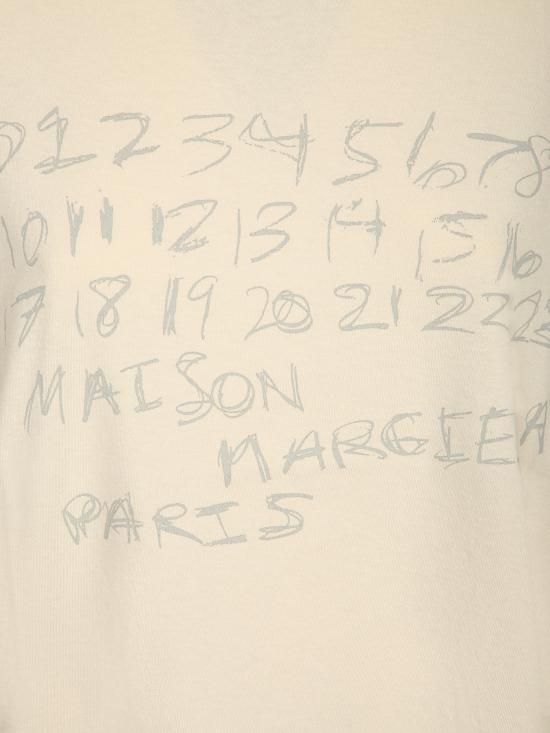 0 1 2 3 4 5 6 7 8
10 11 12 13 14 15 16
17 18 19 20 21 22 23
MAISON
MARGIELA
PARIS